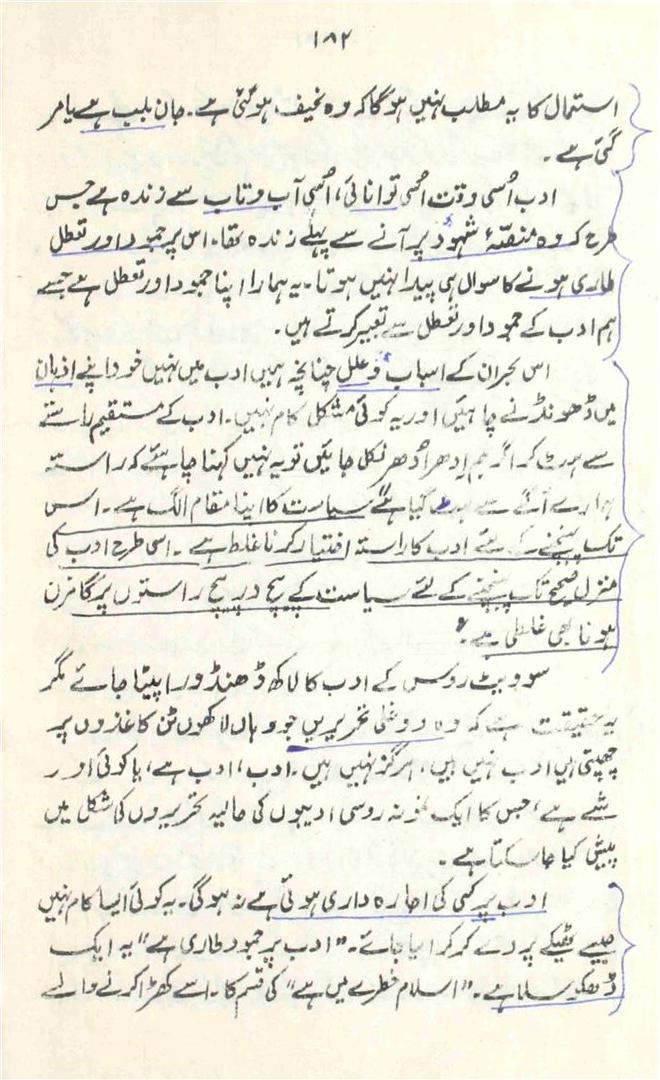 ۱۸۲
استعمال کا یہ مطلب نہیں ہوگا کہ وہ نحیف ہوگئی ہے۔ جان بلب ہے یا مر
گئی ہے۔
ادب اُسی وقت اُسی توانائی، اُسی آب و تاب سے زندہ ہے جس
طرح کہ وہ منصۂ شہود پر آنے سے پہلے زندہ تھا۔ اس پر جمود اور تعطل
طاری ہونے کا سوال ہی پیدا نہیں ہوتا۔ یہ ہمارا اپنا جمود اور تعطل ہے جسے
ہم ادب کے جمود اور تعطل سے تعبیر کرتے ہیں۔
اس بحران کے اسباب و علل چنانچہ ہمیں ادب میں نہیں خود اپنے اذہان
میں ڈھونڈنے چاہئیں اور یہ کوئی مشکل کام نہیں۔ ادب کے مستقیم راستے
سے ہٹ کر اگر ہم اِدھر اُدھر نکل جائیں تو یہ نہیں کہنا چاہئے کہ راستہ
ہمارے آگے سے ہٹ گیا ہے سیاست کا اپنا مقام الگ ہے۔ اس
تک پہنچنے کے لئے ادب کا راستہ اختیار کرنا غلط ہے۔ اسی طرح ادب کی
منزل صحیح تک پہنچنے کے لئے سیاست کے پیچ در پیچ راستوں پر گامزن
ہونا بھی غلطی ہے۔
سوویٹ روس کے ادب کا لاکھ ڈھنڈورا پیٹا جائے مگر
یہ حقیقت ہے کہ وہ دوغلی تحریریں جو وہاں لاکھوں ٹن کاغذوں پر
چھپتی ہیں ادب نہیں ہیں، ہرگز نہیں ہیں۔ ادب، ادب ہے، یا کوئی اور
شے ہے، جس کا ایک نمونہ روسی ادیبوں کی حالیہ تحریروں کی شکل میں
پیش کیا جا سکتا ہے۔
ادب پر کسی کی اجارہ داری ہوئی ہے نہ ہوگی۔ یہ کوئی ایسا کام نہیں
جسے ٹھیکے پر دے کر کرایا جائے۔ "ادب پر جمود طاری ہے" یہ ایک
ڈھکوسلا ہے۔ "اسلام خطرے میں ہے" کی قسم کا۔ اسے کھڑا کرنے والے